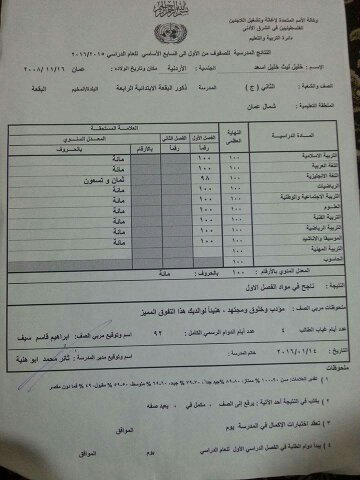 وكالة الأمم المتحدة لإغاثة وتشغيل اللاجئين
الفلسطينيين في الشرق الأدنى
دائرة التربية والتعليم
النتائج المدرسية للصفوف من الأول الى السابع الأساسي للعام الدراسي ٢٠١٦/٢٠١٥
الاسم : خليل ليث خليل اسعد الجنسية : الأردنية مكان وتاريخ الولادة : عمان ٢٠٠٨/١١/١٦
الصف والشعبة : الثاني ( ج ) المدرسة : ذكور البقعة الابتدائية الرابعة البلدة/المخيم البقعة
المنطقة التعليمية : شمال عمان
المادة الدراسية النهاية العظمى العلامة المستحقة
الفصل الأول رقماً الفصل الثاني رقماً المعدل السنوي بالأرقام بالحروف
التربية الاسلامية ١٠٠ ١٠٠ مائة
اللغة العربية ١٠٠ ١٠٠ مائة
اللغة الانجليزية ١٠٠ ٩٨ ثمان و تسعون
الرياضيات ١٠٠ ١٠٠ مائة
التربية الاجتماعية والوطنية ١٠٠ ١٠٠ مائة
العلوم ١٠٠ ١٠٠ مائة
التربية الفنية ١٠٠ ١٠٠ مائة
التربية الرياضية ١٠٠ ١٠٠ مائة
الموسيقا والأناشيد ١٠٠ ١٠٠ مائة
التربية المهنية ١٠٠
الحاسوب ١٠٠
المعدل المئوي بالأرقام : ١٠٠ بالحروف : مائة
النتيجة : ناجح في مواد الفصل الأول
ملحوظات مربي الصف : مؤدب وخلوق ومجتهد ، هنيئا لوالديك هذا التفوق المميز
عدد أيام غياب الطالب ٤ عدد أيام الدوام الرسمي الكامل : ٩٢ اسم وتوقيع مربي الصف : ابراهيم قاسم سيف
التاريخ : ٢٠١٦/٠١/١٤ خاتم المدرسة : اسم وتوقيع مدير المدرسة : ثائر محمد ابو هنية
ملحوظات
١ ) تفسير العلامات: من ٩٠-١٠٠ % ممتاز، ٨٠-٨٩ % جيد جداً، ٧٠-٧٩ % جيد، ٦٠-٦٩ % متوسط، ٥٠-٥٩ % مقبول، ٤٩ % فما دون مقصر
٢ ) يكتب في النتيجة أحد الآتية : يرفع إلى الصف - مكمل في - يعيد صفه
٣ ) تعقد اختبارات الإكمال في المدرسة يوم الموافق
٤ ) يبدأ دوام الطلبة في الفصل الدراسي الأول للعام الدراسي يوم الموافق